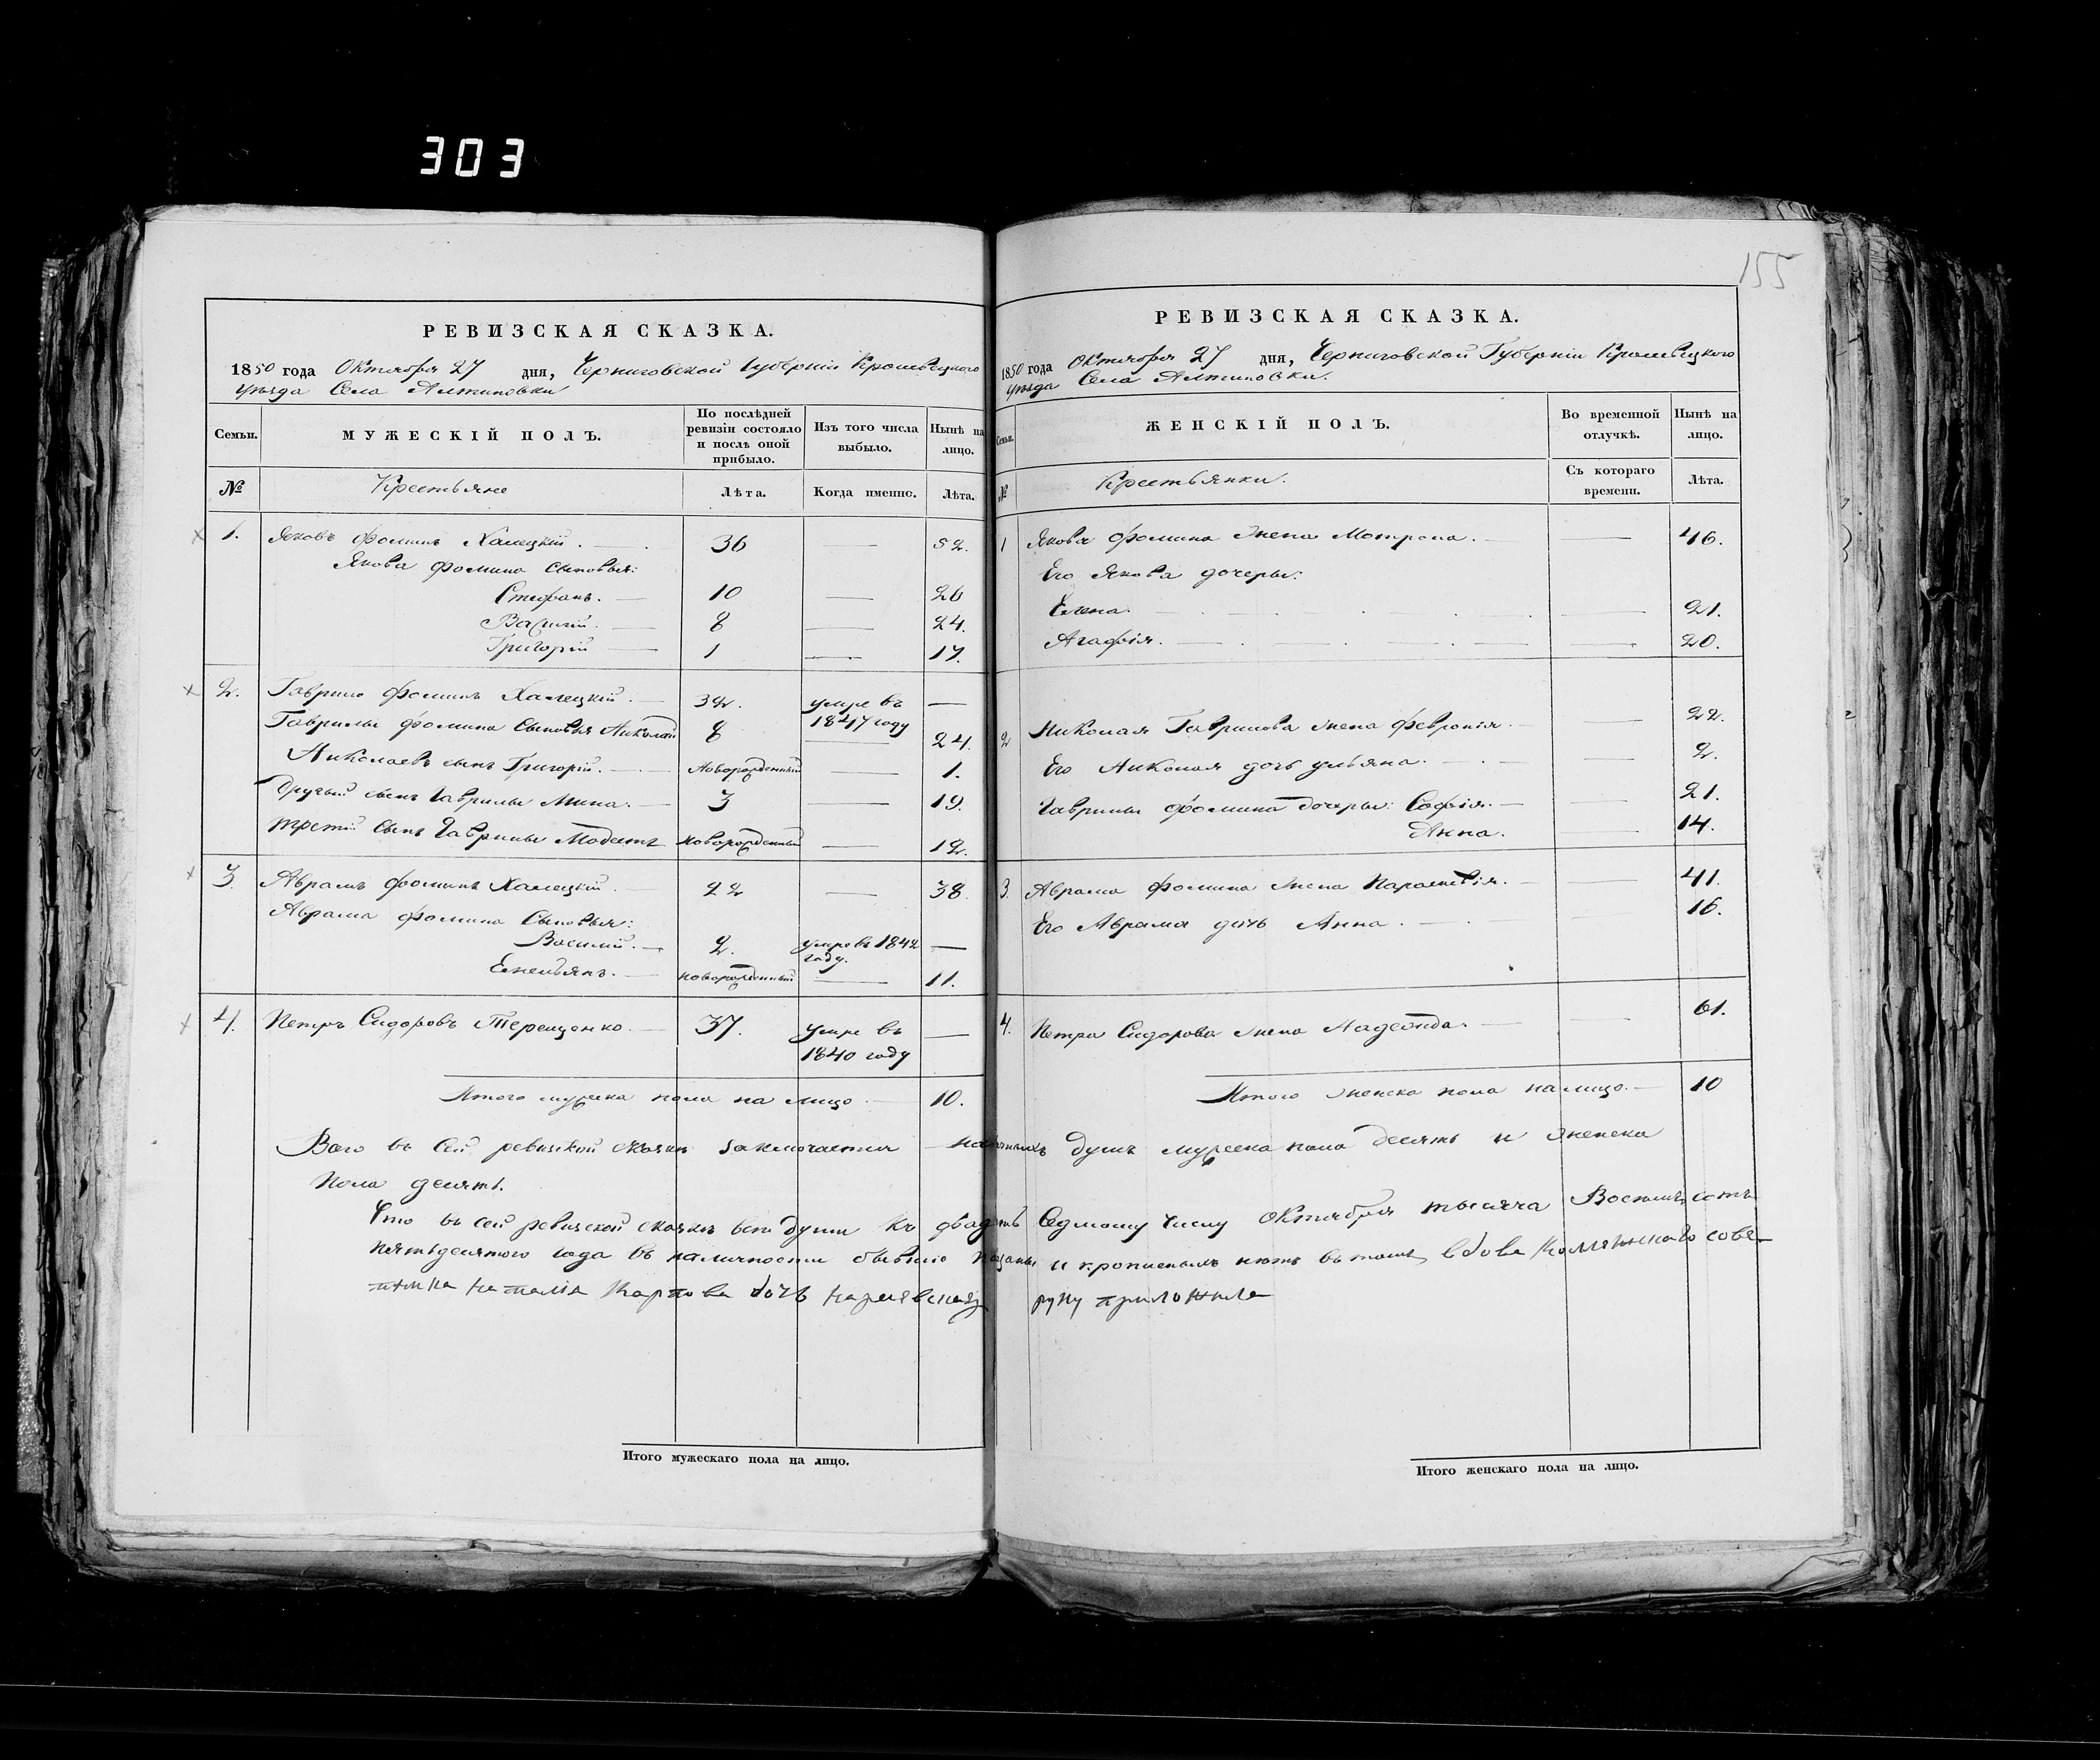 303
155
РЕВИЗСКАЯ СКАЗКА.
1850 года Октября 27 дня, Черниговской Губерніи Кролевецкого
уѣзда Села Алтиновки
Семьи.
МУЖЕСКІЙ ПОЛЪ.
По послѣдней
ревизіи состояло
и послѣ оной
прибыло.
Изъ того числа
выбыло.
Нынѣ на
лицо.
№
Крестьяне
Лѣта.
Когда именно.
Лѣта.
1. Яковъ Фоминъ Халецкій. 36 — 52.
Якова Фомина Сыновья:
Стефанъ. 10 — 26
Василій. 8 — 24.
Григорій 1 — 17.
2. Гаврило Фоминъ Халецкій. 32. умре въ —
1847 году
Гаврилы Фомина Сыновья Николай 8 — 24.
Николаевъ сынъ Григорій. новорожденный — 1.
Другий сынъ Гаврилы Мина. 3 — 19.
Третій сынъ Гаврилы Модестъ новорожденный — 12.
3. Аврамъ Фоминъ Халецкій 22 — 38.
Аврама Фомина Сыновья:
Василий. 2. умре въ 1842 —
году.
Емельянъ. новорожденный — 11.
4. Петръ Сидоровъ Терещенко. 37. умре въ —
1840 году
Итого мужеска пола на лицо 10.
Итого мужескаго пола на лицо.
РЕВИЗСКАЯ СКАЗКА.
1850 года Октября 27 дня, Черниговской Губерніи Кролевецкого
уѣзда Села Алтиновки.
Семьи.
ЖЕНСКІЙ ПОЛЪ.
Во временной
отлучкѣ.
Нынѣ на
лицо.
№
Крестьянки.
Съ котораго
времени.
Лѣта.
1 Якова Фомина жена Мотрона. — 46.
Его Якова дочеры:
Елена. — 21.
Агафія. — 20.
2 Николая Гаврилова жена Февронія — 22.
Его Николая дочь Ульяна. 2.
Гаврилы Фомина дочеры: Софія. — 21.
Анна. — 14.
3. Аврама Фомина жена Параскевія. — 41.
Его Аврама дочь Анна. — 16.
4. Петра Сидорова жена — 61.
Итого женска пола налицо. 10
Всего въ сей ревизской сказки заключается наличныхъ душъ мужеска пола десять и женска
пола десять.
Что въ сей ревизской сказкѣ все души къ двадцать Седмому числу Октября тысяча Восемь сотъ
пятьдесятого года въ наличности бывшіе показаны и прописныхъ нетъ въ томъ, вдова сове
тника наталія Карпова дочь руку приложила
Итого женскаго пола на лицо.